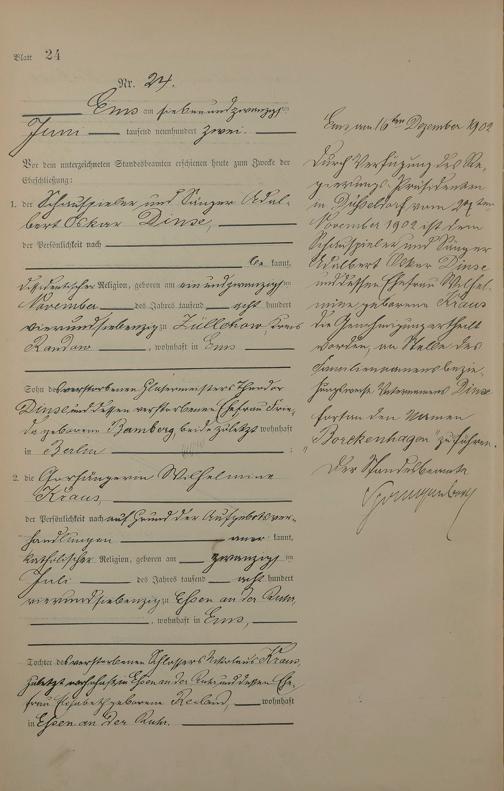 Blatt 24
Nr. 24.
Ems am siebenundzwanzigsten
Juni tausend neunhundert zwei.
Vor dem unterzeichneten Standesbeamten erschienen heute zum Zwecke der
Eheschließung:
1. der Schauspieler und Sänger Adal-
bert Oskar Dinse,
der Persönlichkeit nach
be kannt,
Religion, geboren am einundzwanzigsten
November des Jahres tausend acht hundert
vierundsiebenzig zu Züllchow, Kreis
Randow, wohnhaft in Ems
Sohn des verstorbenen Glasermeisters Theodor
Dinse und dessen verstorbenen Ehefrau Frie-
da geborenen Bamberg, beide zuletzt wohnhaft
in Berlin
2. die Chorsängerin Wilhelmine
Kraus,
der Persönlichkeit nach auf Grund der Aufgebotsver-
handlungen aner kannt,
katholischer Religion, geboren am zwanzigsten
Juli des Jahres tausend acht hundert
vierundsiebenzig zu Essen an der Ruhr,
, wohnhaft in Ems,
Tochter des verstorbenen Schlossers Kraus,
zuletzt wohnhaft in Essen an der Ruhr und dessen Ehe-
frau Elisabeth geborene wohnhaft
in Essen an der Ruhr.
Ems am 16ten Dezember 1902
Durch Verfügung des Re-
gierungs-Präsidenten
in Düsseldorf vom
November 1902 ist dem
Schauspieler und Sänger
Adalbert Oskar Dinse
und dessen Ehefrau Wilhel-
mine geborene Kraus
die Genehmigung ertheilt
worden, an Stelle des
Familiennamens bezie-
hungsweise Dinse
fortan den Namen
"Borckenhagen" zu führen.
Der Standesbeamte